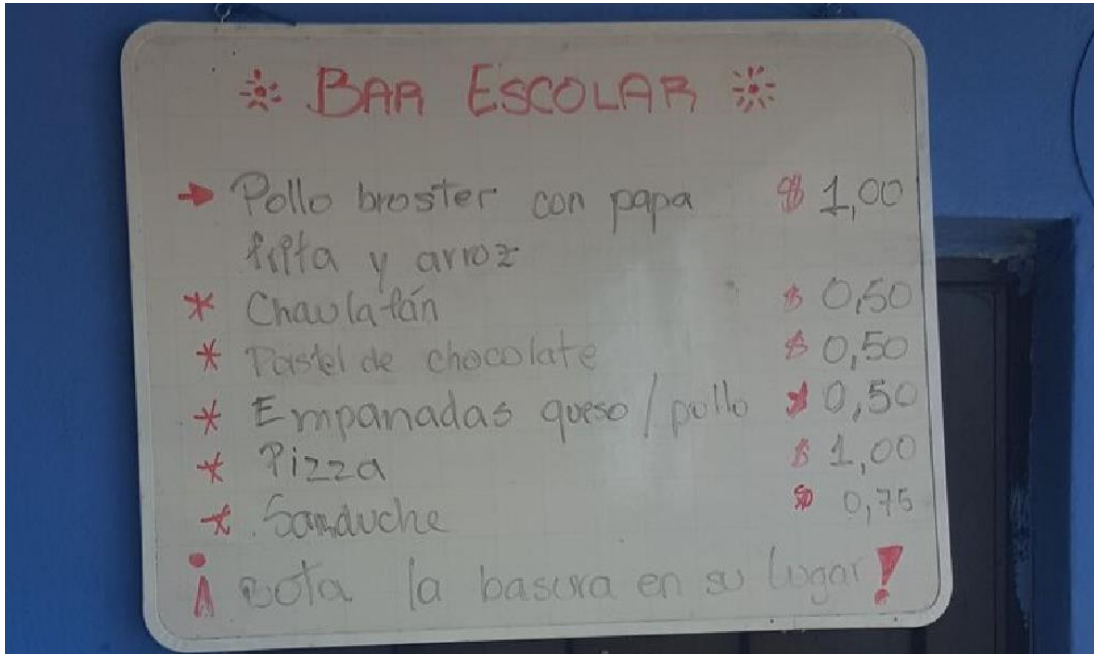 BAR ESCOLAR
Pollo broster con papa $ 1,00
frita y arroz
* Chaulafán $ 0,50
* Pastel de chocolate $ 0,50
* Empanadas queso/pollo $ 0,50
* Pizza $ 1,00
* Sanduche $ 0,75
¡Bota la basura en su lugar!